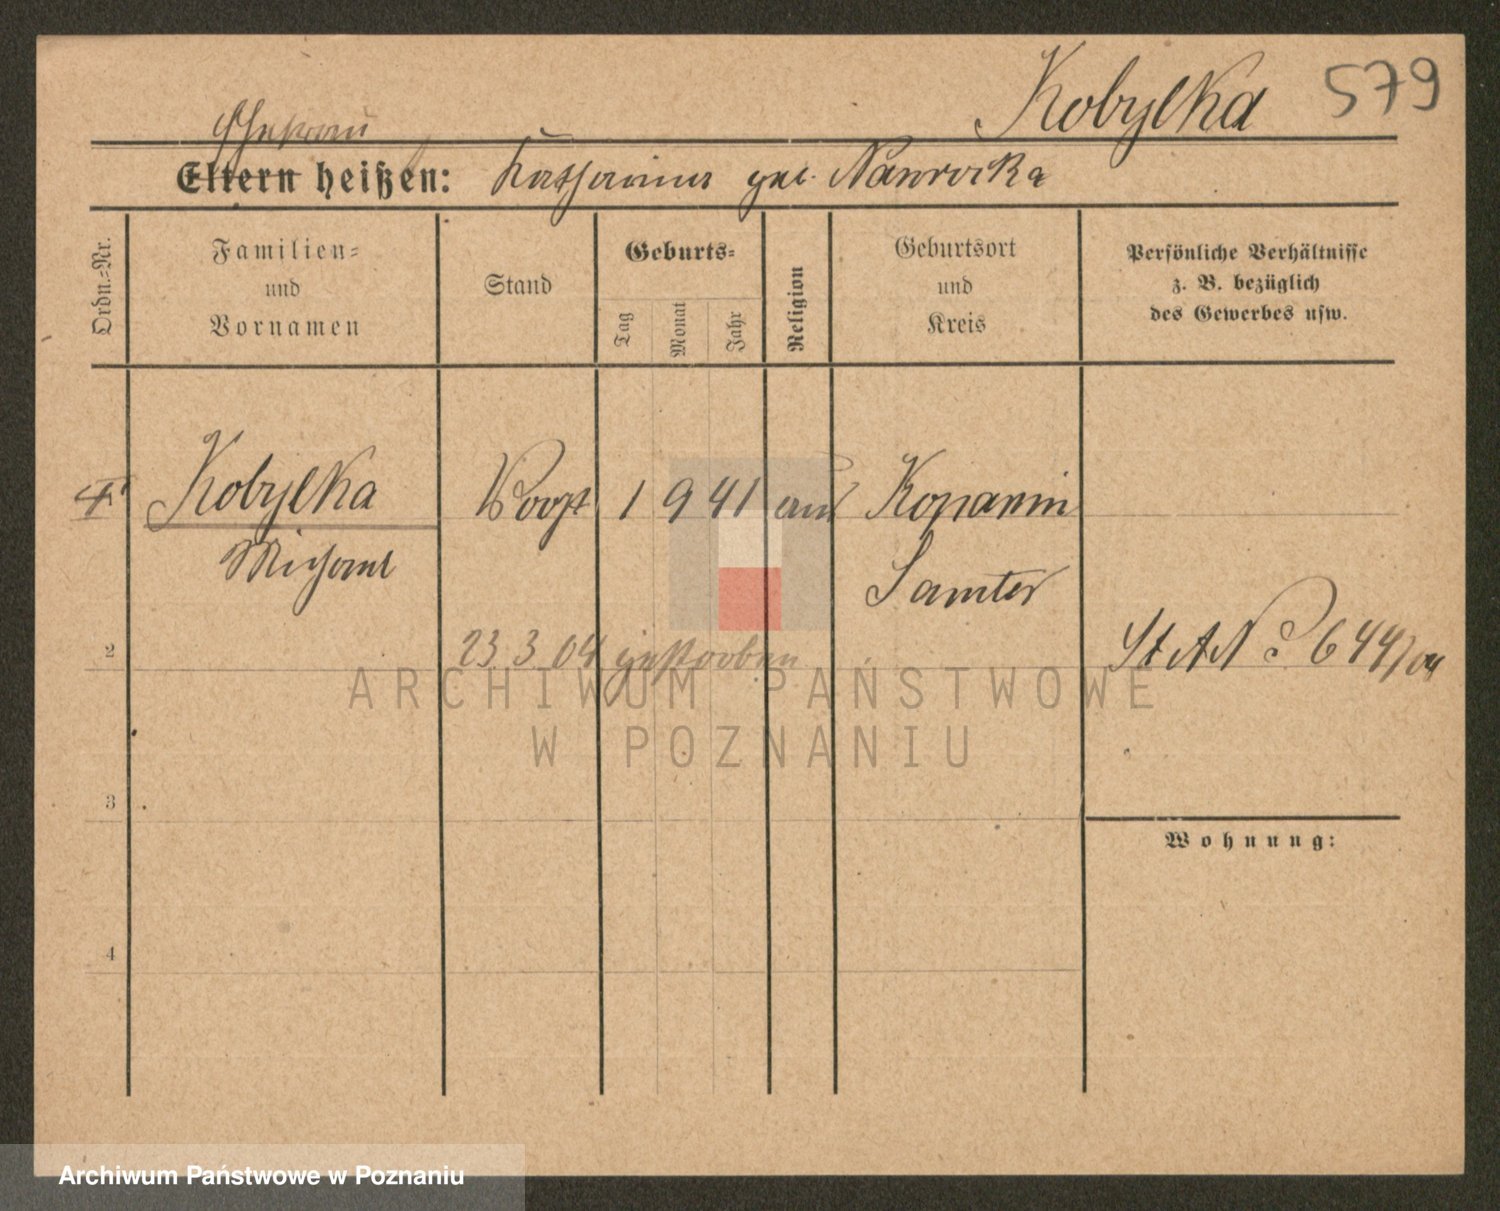 Kobylka 579
Ehefrau
Eltern heißen: Katharina geb. Nawrocka
Ordn.=Nr.
Familien=
und
Vornamen
Stand
Geburts=
Tag
Monat
Jahr
Religion
Geburtsort
und
Kreis
Persönliche Verhältnisse
z. B. bezüglich
des Gewerbes usw.
Kobylka
Michael
Voogt
1 9 41
Kopanin
Samter
2
23 3 04 gestorben
St A N 644/04
3
4
Wohnung:
ARCHIWUM PAŃSTWOWE
W POZNANIU
Archiwum Państwowe w Poznaniu